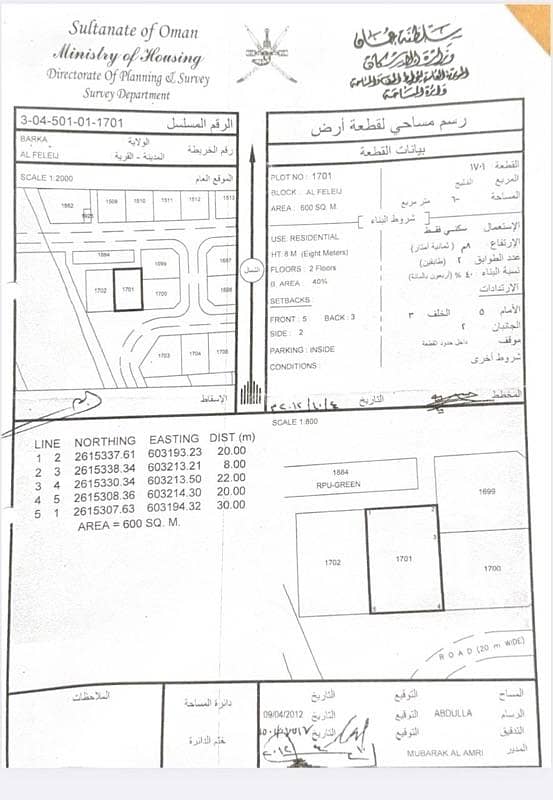 Sultanate of Oman
Ministry of Housing
Directorate Of Planning & Survey
Survey Department
سلطنة عمان
وزارة الإسكان
المديرية العامة للتخطيط والمساحة
دائرة المساحة
3-04-501-01-1701 الرقم المسلسل
BARKA الولاية
AL FELEIJ المدينة - القرية رقم الخريطة
SCALE 1:2000 الموقع العام
1662
1509
1510
1511
1512
1513
1684
1699
1702
1701
1700
1703
1704
الشمال
الإسقاط
رسم مساحي لقطعة أرض
بيانات القطعة
PLOT NO : 1701 القطعة ١٧٠١
BLOCK : AL FELEIJ المربع الفليج
AREA : 600 SQ. M. المساحة ٦٠٠ متر مربع
شروط البناء
USE: RESIDENTIAL الإستعمال سكني فقط
HT: 8 M. (Eight Meters) الإرتفاع ٨م (ثمانية أمتار)
FLOORS : 2 Floors عدد الطوابق ٢ (طابقين)
B. AREA : 40% نسبة البناء ٤٠ % (أربعون بالمائة)
SETBACKS الإرتدادات
FRONT : 5 BACK : 3 الأمام ٥ الخلف ٣
SIDE : 2 الجانبان ٢
PARKING : INSIDE موقف داخل حدود القطعة
CONDITIONS : شروط أخرى
المخطط التاريخ
SCALE 1:800
LINE NORTHING EASTING DIST (m)
1 2 2615337.61 603193.23 20.00
2 3 2615338.34 603213.21 8.00
3 4 2615330.34 603213.50 22.00
4 5 2615308.36 603214.30 20.00
5 1 2615307.63 603194.32 30.00
AREA = 600 SQ. M.
1684
RPU-GREEN
1699
1702
1701
1700
1
2
3
4
5
ROAD (20 m WIDE)
الملاحظات
دائرة المساحة
ختم الدائرة
المساح التوقيع التاريخ
الرسام ABDULLA التوقيع التاريخ 09/04/2012
التدقيق التوقيع التاريخ
المدير MUBARAK AL AMRI